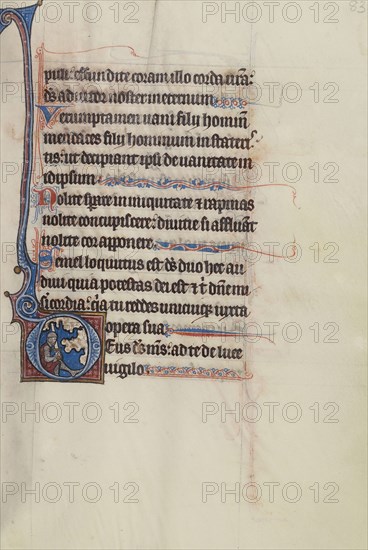 83
puli: effundite coram illo corda vr̄a:
ds adiutor noster in eternum
Verumptamen vani filii homin̄
mendaces filii hominum in stateris
tis: ut decipiant ipsi de vanitate in
idipsum
Nolite sp̄are in iniquitate et rapinas
nolite concupiscere: divitie si affluant
nolite cor apponere
Semel locutus est ds duo hec au
divi quia potestas dei est et t̄ dn̄e mi
sericordia: q̄a tu reddes unicuique iuxta
opera sua
Deus ds m̄s: ad te de luce
vigilo
PHOTO 12 PHOTO 12 PHOTO 12
PHOTO 12 PHOTO 12 PHOTO 12
PHOTO 12 PHOTO 12 PHOTO 12
PHOTO 12 PHOTO 12 PHOTO 12
PHOTO 12 PHOTO 12 PHOTO 12
PHOTO 12 PHOTO 12 PHOTO 12